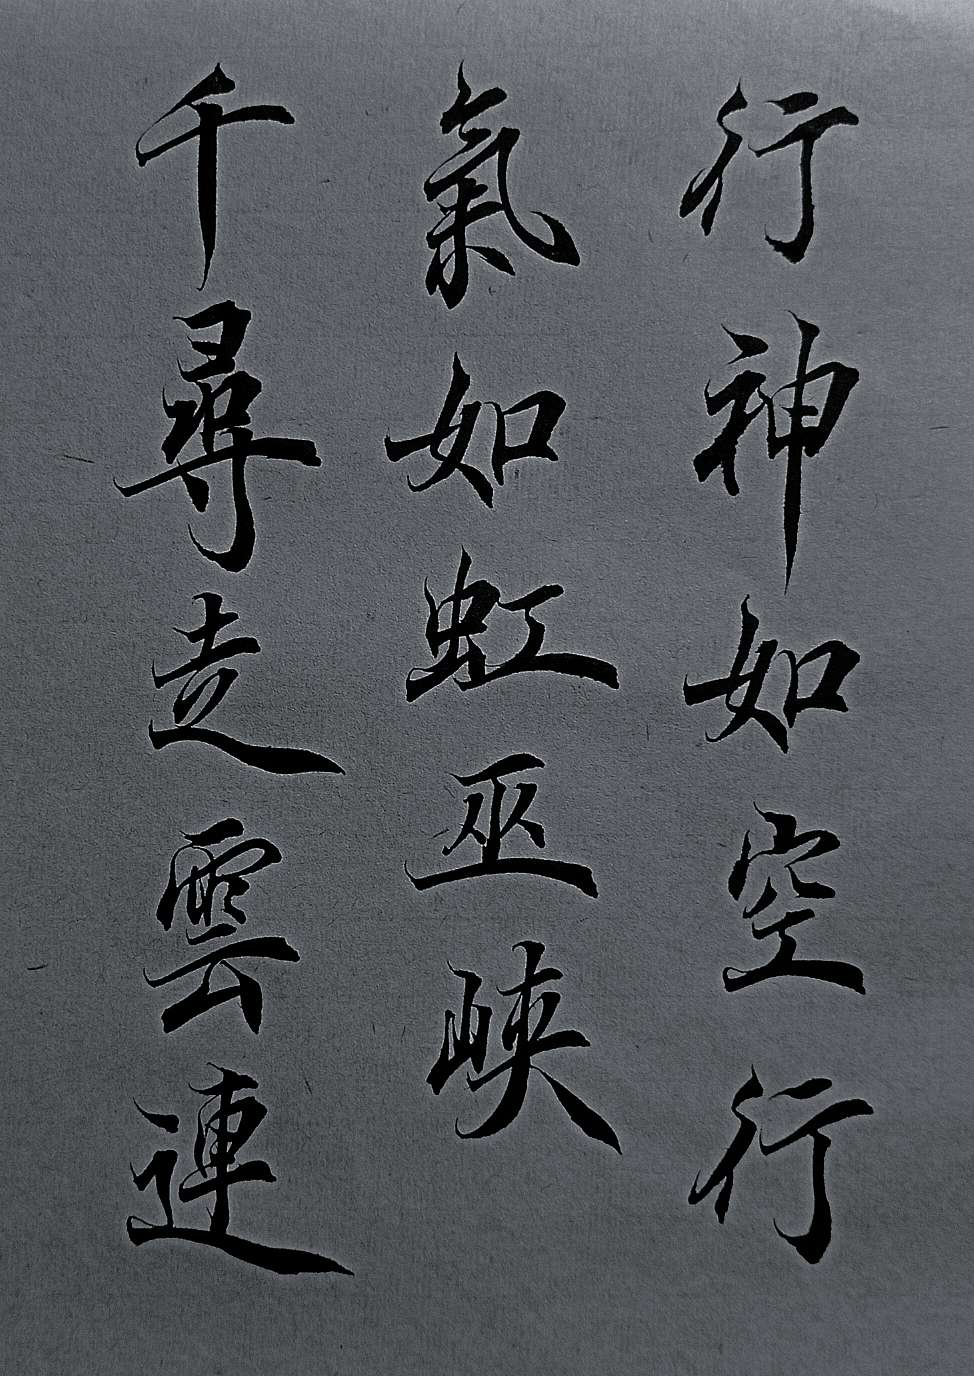 行神如空行
氣如虹巫峽
千尋走雲連